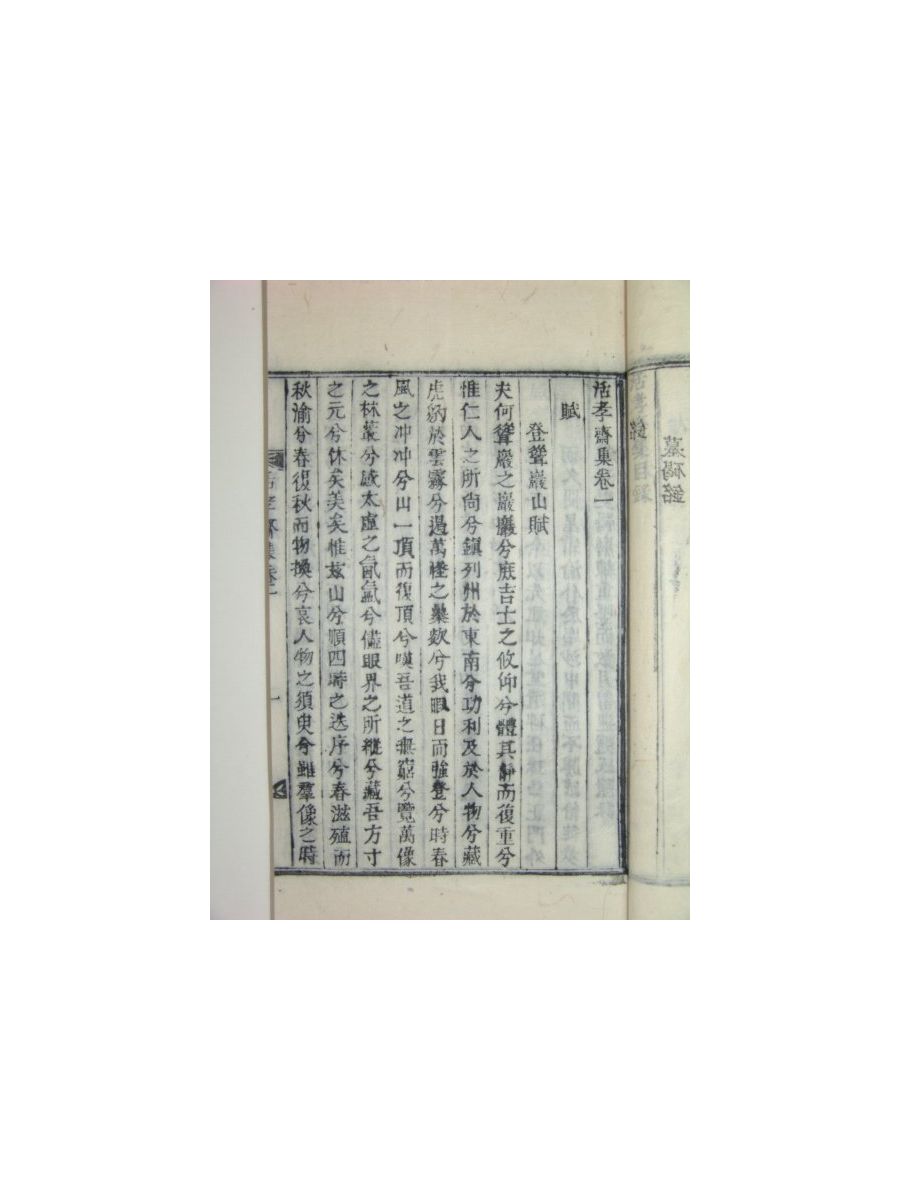 墓碣銘
活孝齋集卷一
賦
登聳巖山賦
夫何聳巖之巖巖兮庶吉士之攸仰兮體其靜而復重兮
惟仁人之所尙兮鎭列州於東南兮功利及於人物兮藏
虎豹於雲霧兮過萬橙之欵兮我暇日而强登兮時春
風之冲冲兮山一頂而復頂兮嘆吾道之無窮兮覽萬像
之林叢兮感太虛之氤氳兮儘眼界之所縱兮藏吾方寸
之元兮休矣美矣惟玆山兮順四時之迭序兮春滋殖而
秋渝兮春復秋而物換兮哀人物之須臾兮雖羣像之時